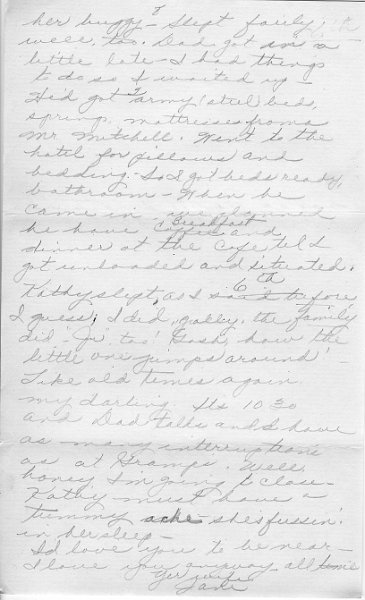 her buggy - Slept fairly
well, too. Dad got in a
little late - I had things
to do so I waited up -
He'd got army (steel) bed,
spring, mattresses from a
Mr. Mitchell. Went to the
hotel for pillows and
bedding - So I got beds ready,
bathroom - When he
came in we planned
he have Breakfast and
dinner at the Cafe til I
got unloaded and situated.
Kathy slept, as I said before
I guess, I did, golly, the family
did - Jr. too! Gosh, how the
little one jumps around! -
Like old times again
my darling. Its 10 30
and Dad talks and I have
as many interruptions
as at Gramps. Well,
honey I'm going to close -
Kathy must have a
tummy ache - she's fussin'
in her sleep -
I'd love you to be near -
I love you anyway - all time
Yer wife
Jane